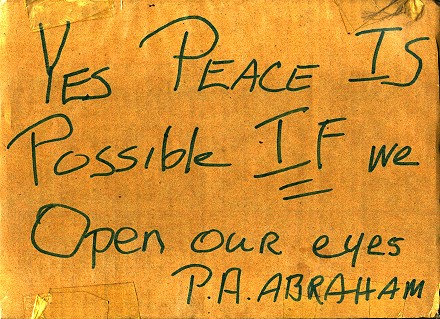 Yes Peace Is
Possible IF we
Open our eyes
P.A. ABRAHAM